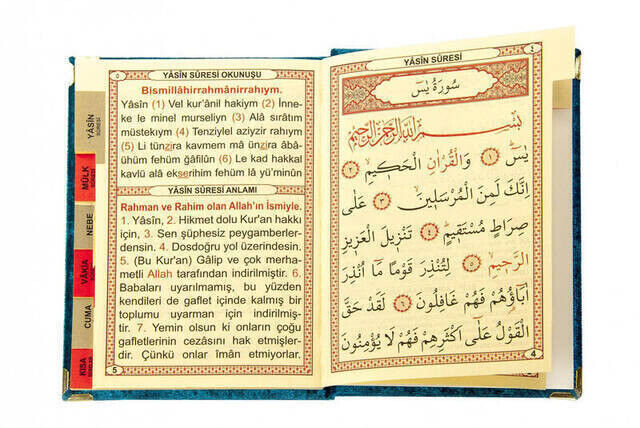 YÂSÎN SÛRESİ
MÜLK
NEBE
VÂKIA
CUMA
KISA
٥
YÂSÎN SÛRESİ OKUNUŞU
Bismillâhirrahmânirrahıym.
Yâsîn (1) Vel kur'ânil hakiym (2) İnne-
ke le minel murseliyn (3) Alâ sırâtım
müstekıym (4) Tenziylel aziyzir rahıym
(5) Li tünzira kavmem mâ ünzira âbâ-
ühüm fehüm ğâfilûn (6) Le kad hakkal
kavlü alâ ekserihim fehüm lâ yü'minûn
YÂSÎN SÛRESİ ANLAMI
Rahman ve Rahim olan Allah'ın İsmiyle.
1. Yâsîn, 2. Hikmet dolu Kur'an hakkı
için, 3. Sen şüphesiz peygamberler-
densin. 4. Dosdoğru yol üzerindesin.
5. (Bu Kur'an) Gâlip ve çok merha-
metli Allah tarafından indirilmiştir. 6.
Babaları uyarılmamış, bu yüzden
kendileri de gaflet içinde kalmış bir
toplumu uyarman için indirilmiş-
tir. 7. Yemin olsun ki onların çoğu
gafletlerinin cezasını hak etmişler-
dir. Çünkü onlar îmân etmiyorlar.
5
YÂSÎN SÛRESİ
٤
سُورَةُ يٰسٓ
بِسْمِ اللّٰهِ الرَّحْمٰنِ الرَّحِيمِ
يٰسٓ ﴿١﴾ وَالْقُرْاٰنِ الْحَكِيمِ ﴿٢﴾
اِنَّكَ لَمِنَ الْمُرْسَلِينَ ﴿٣﴾ عَلٰى
صِرَاطٍ مُسْتَقِيمٍ ﴿٤﴾ تَنْزِيلَ الْعَزِيزِ
الرَّحِيمِ ﴿٥﴾ لِتُنْذِرَ قَوْمًا مَٓا اُنْذِرَ
اٰبَٓاؤُهُمْ فَهُمْ غَافِلُونَ ﴿٦﴾ لَقَدْ حَقَّ
الْقَوْلُ عَلٰٓى اَكْثَرِهِمْ فَهُمْ لَا يُؤْمِنُونَ
4